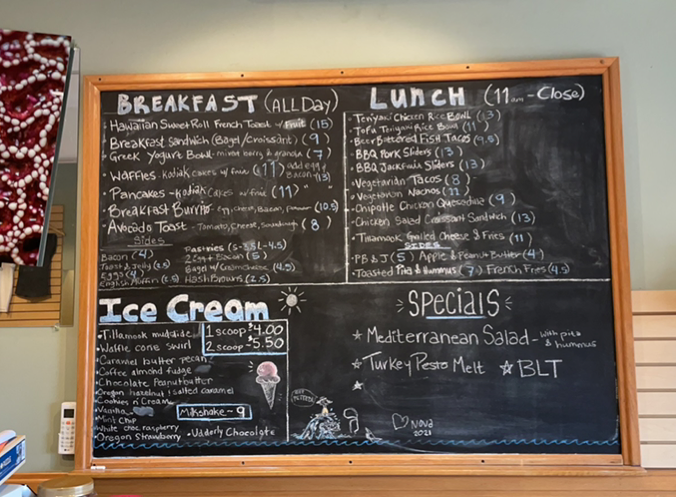 BREAKFAST (ALL Day)
Hawaiian Sweet Roll French Toast w/ Fruit (15)
Breakfast Sandwich (Bagel/Croissant) (9)
Greek Yogurt Bowl - mixed berry & granola (7)
Waffles - kodiak cakes w/ fruit (11) add egg & Bacon (13)
Pancakes - kodiak cakes w/ fruit (11) " "
Breakfast Burrito - Egg, Cheese, Bacon, (10.5)
Avocado Toast - Tomato, Cheese, (8)
Sides
Bacon (4)
Toast & Jelly (3.5)
Eggs (4)
English Muffin
Pastries (S-3.5 L-4.5)
2 Egg + Bacon (5)
Bagel w/ Cream Cheese (4.5)
Hash Browns (2.5)
LUNCH (11 am - Close)
Teriyaki Chicken Rice Bowl (13)
Tofu Teriyaki Rice Bowl (11)
Beer Battered Fish Tacos (9.5)
BBQ Pork Sliders (13)
BBQ Jackfruit Sliders (13)
Vegetarian Tacos (8)
Vegetarian Nachos (11)
Chipotle Chicken Quesadilla (9)
Chicken Salad Croissant Sandwich (13)
Tillamook Grilled Cheese & Fries (11)
SIDES
PB & J (5) Apple & Peanut Butter (4)
Toasted Pita & Hummus (7) French Fries (4.5)
Ice Cream
Tillamook mudslide
Waffle cone swirl
Caramel butter pecan
Coffee almond fudge
Chocolate Peanutbutter
Oregon hazelnut & salted caramel
Cookies n' Cream
Vanilla
Mint Chip
White choc raspberry
Oregon Strawberry
Udderly Chocolate
1 scoop - $4.00
2 scoop - $5.50
Milkshake - 9
SPECIALS
Mediterranean Salad - with pita & hummus
Turkey Pesto Melt
BLT
Nova
2023